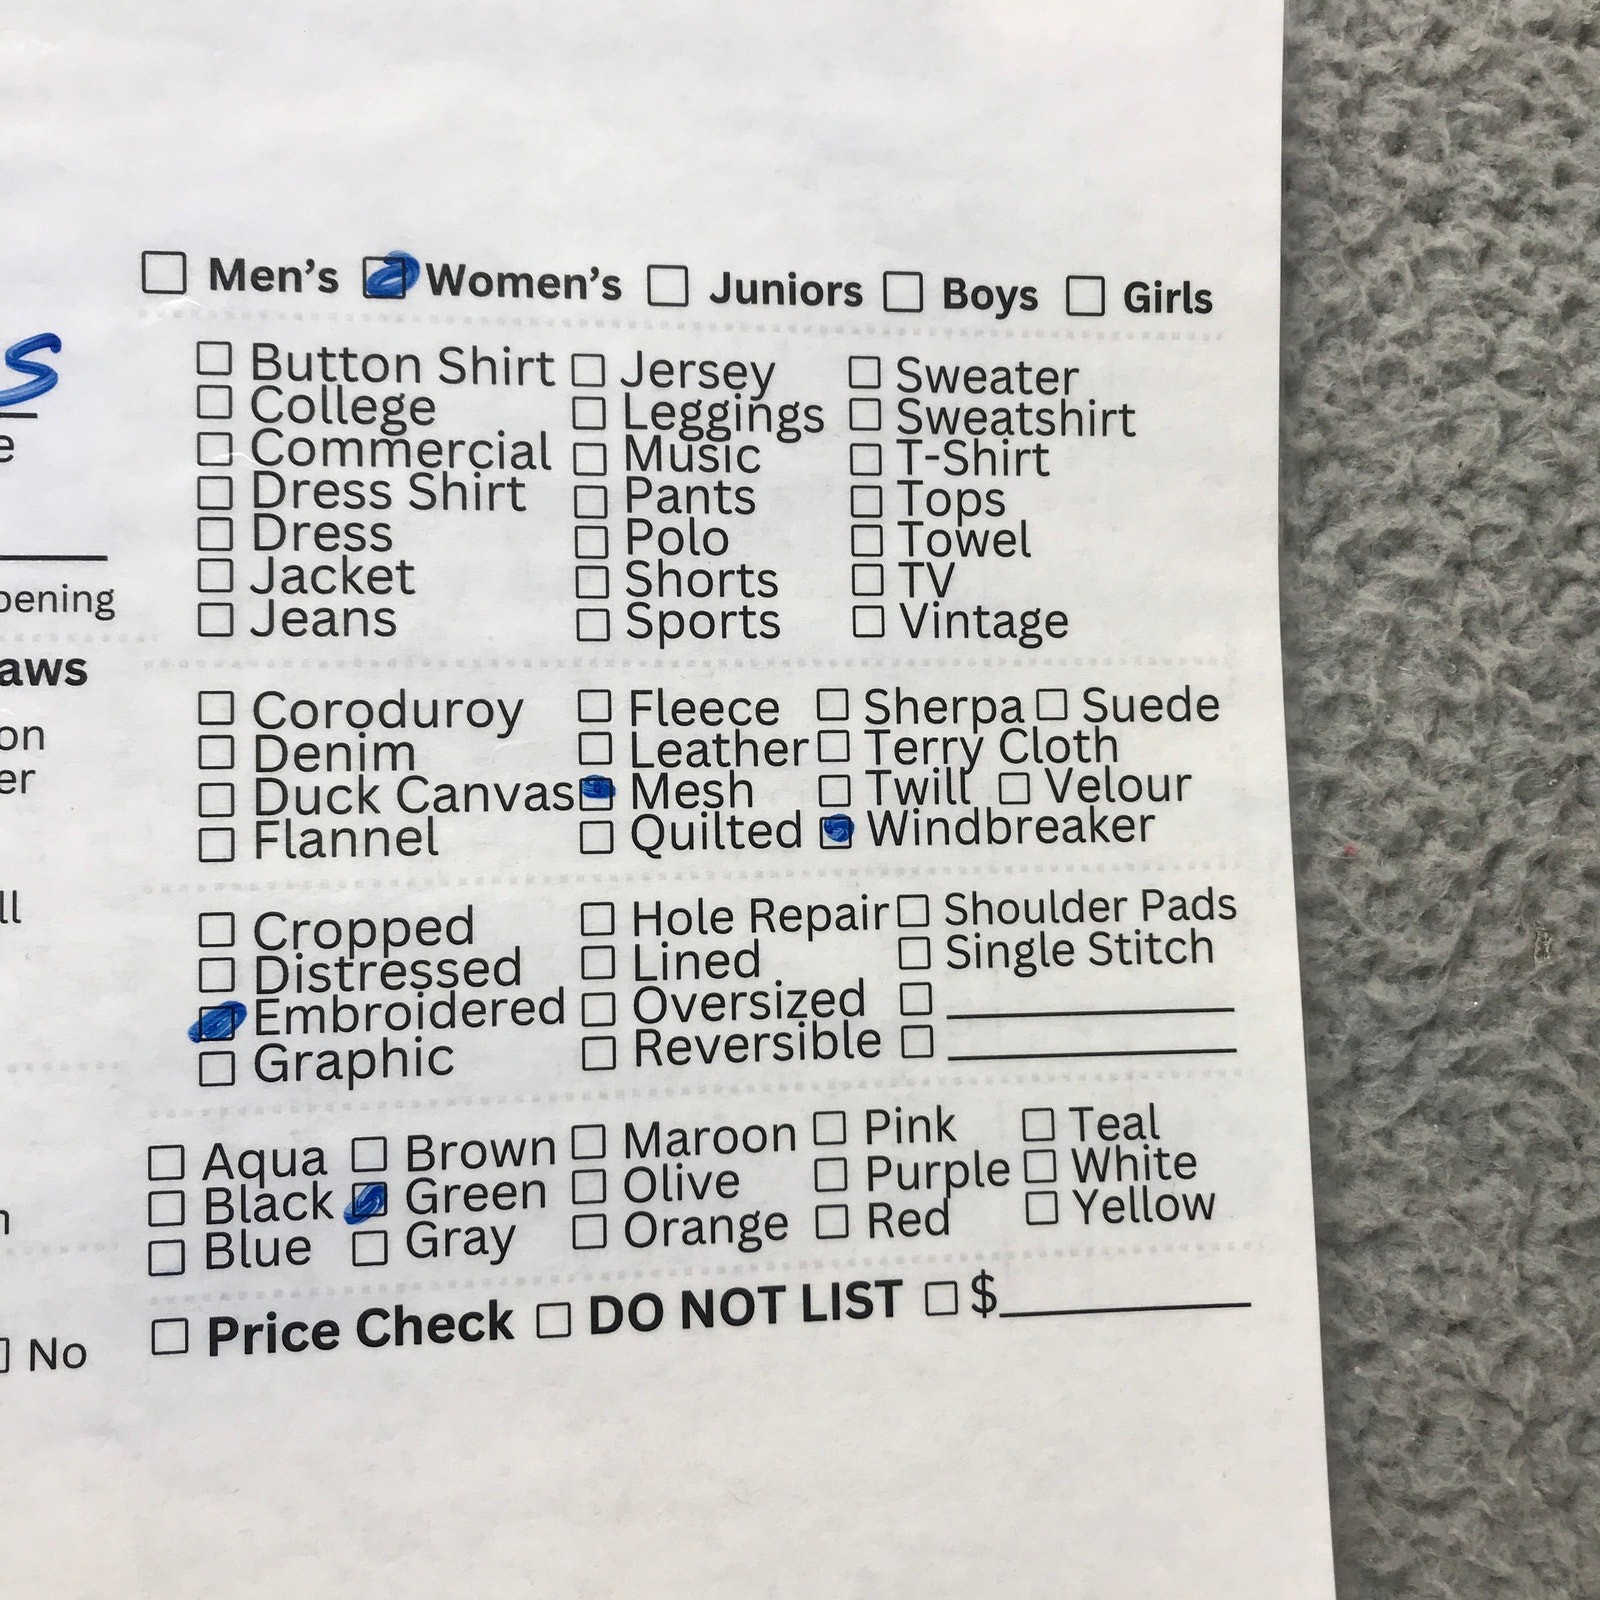 ☐ Men's ☑ Women's ☐ Juniors ☐ Boys ☐ Girls
☐ Button Shirt ☐ Jersey ☐ Sweater
☐ College ☐ Leggings ☐ Sweatshirt
☐ Commercial ☐ Music ☐ T-Shirt
☐ Dress Shirt ☐ Pants ☐ Tops
☐ Dress ☐ Polo ☐ Towel
☐ Jacket ☐ Shorts ☐ TV
☐ Jeans ☐ Sports ☐ Vintage
☐ Coroduroy ☐ Fleece ☐ Sherpa ☐ Suede
☐ Denim ☐ Leather ☐ Terry Cloth
☐ Duck Canvas ☑ Mesh ☐ Twill ☐ Velour
☐ Flannel ☐ Quilted ☑ Windbreaker
☐ Cropped ☐ Hole Repair ☐ Shoulder Pads
☐ Distressed ☐ Lined ☐ Single Stitch
☑ Embroidered ☐ Oversized ☐
☐ Graphic ☐ Reversible ☐
☐ Aqua ☐ Brown ☐ Maroon ☐ Pink ☐ Teal
☐ Black ☑ Green ☐ Olive ☐ Purple ☐ White
☐ Blue ☐ Gray ☐ Orange ☐ Red ☐ Yellow
☐ Price Check ☐ DO NOT LIST ☐ $
s
e
pening
aws
on
er
ll
☐ No